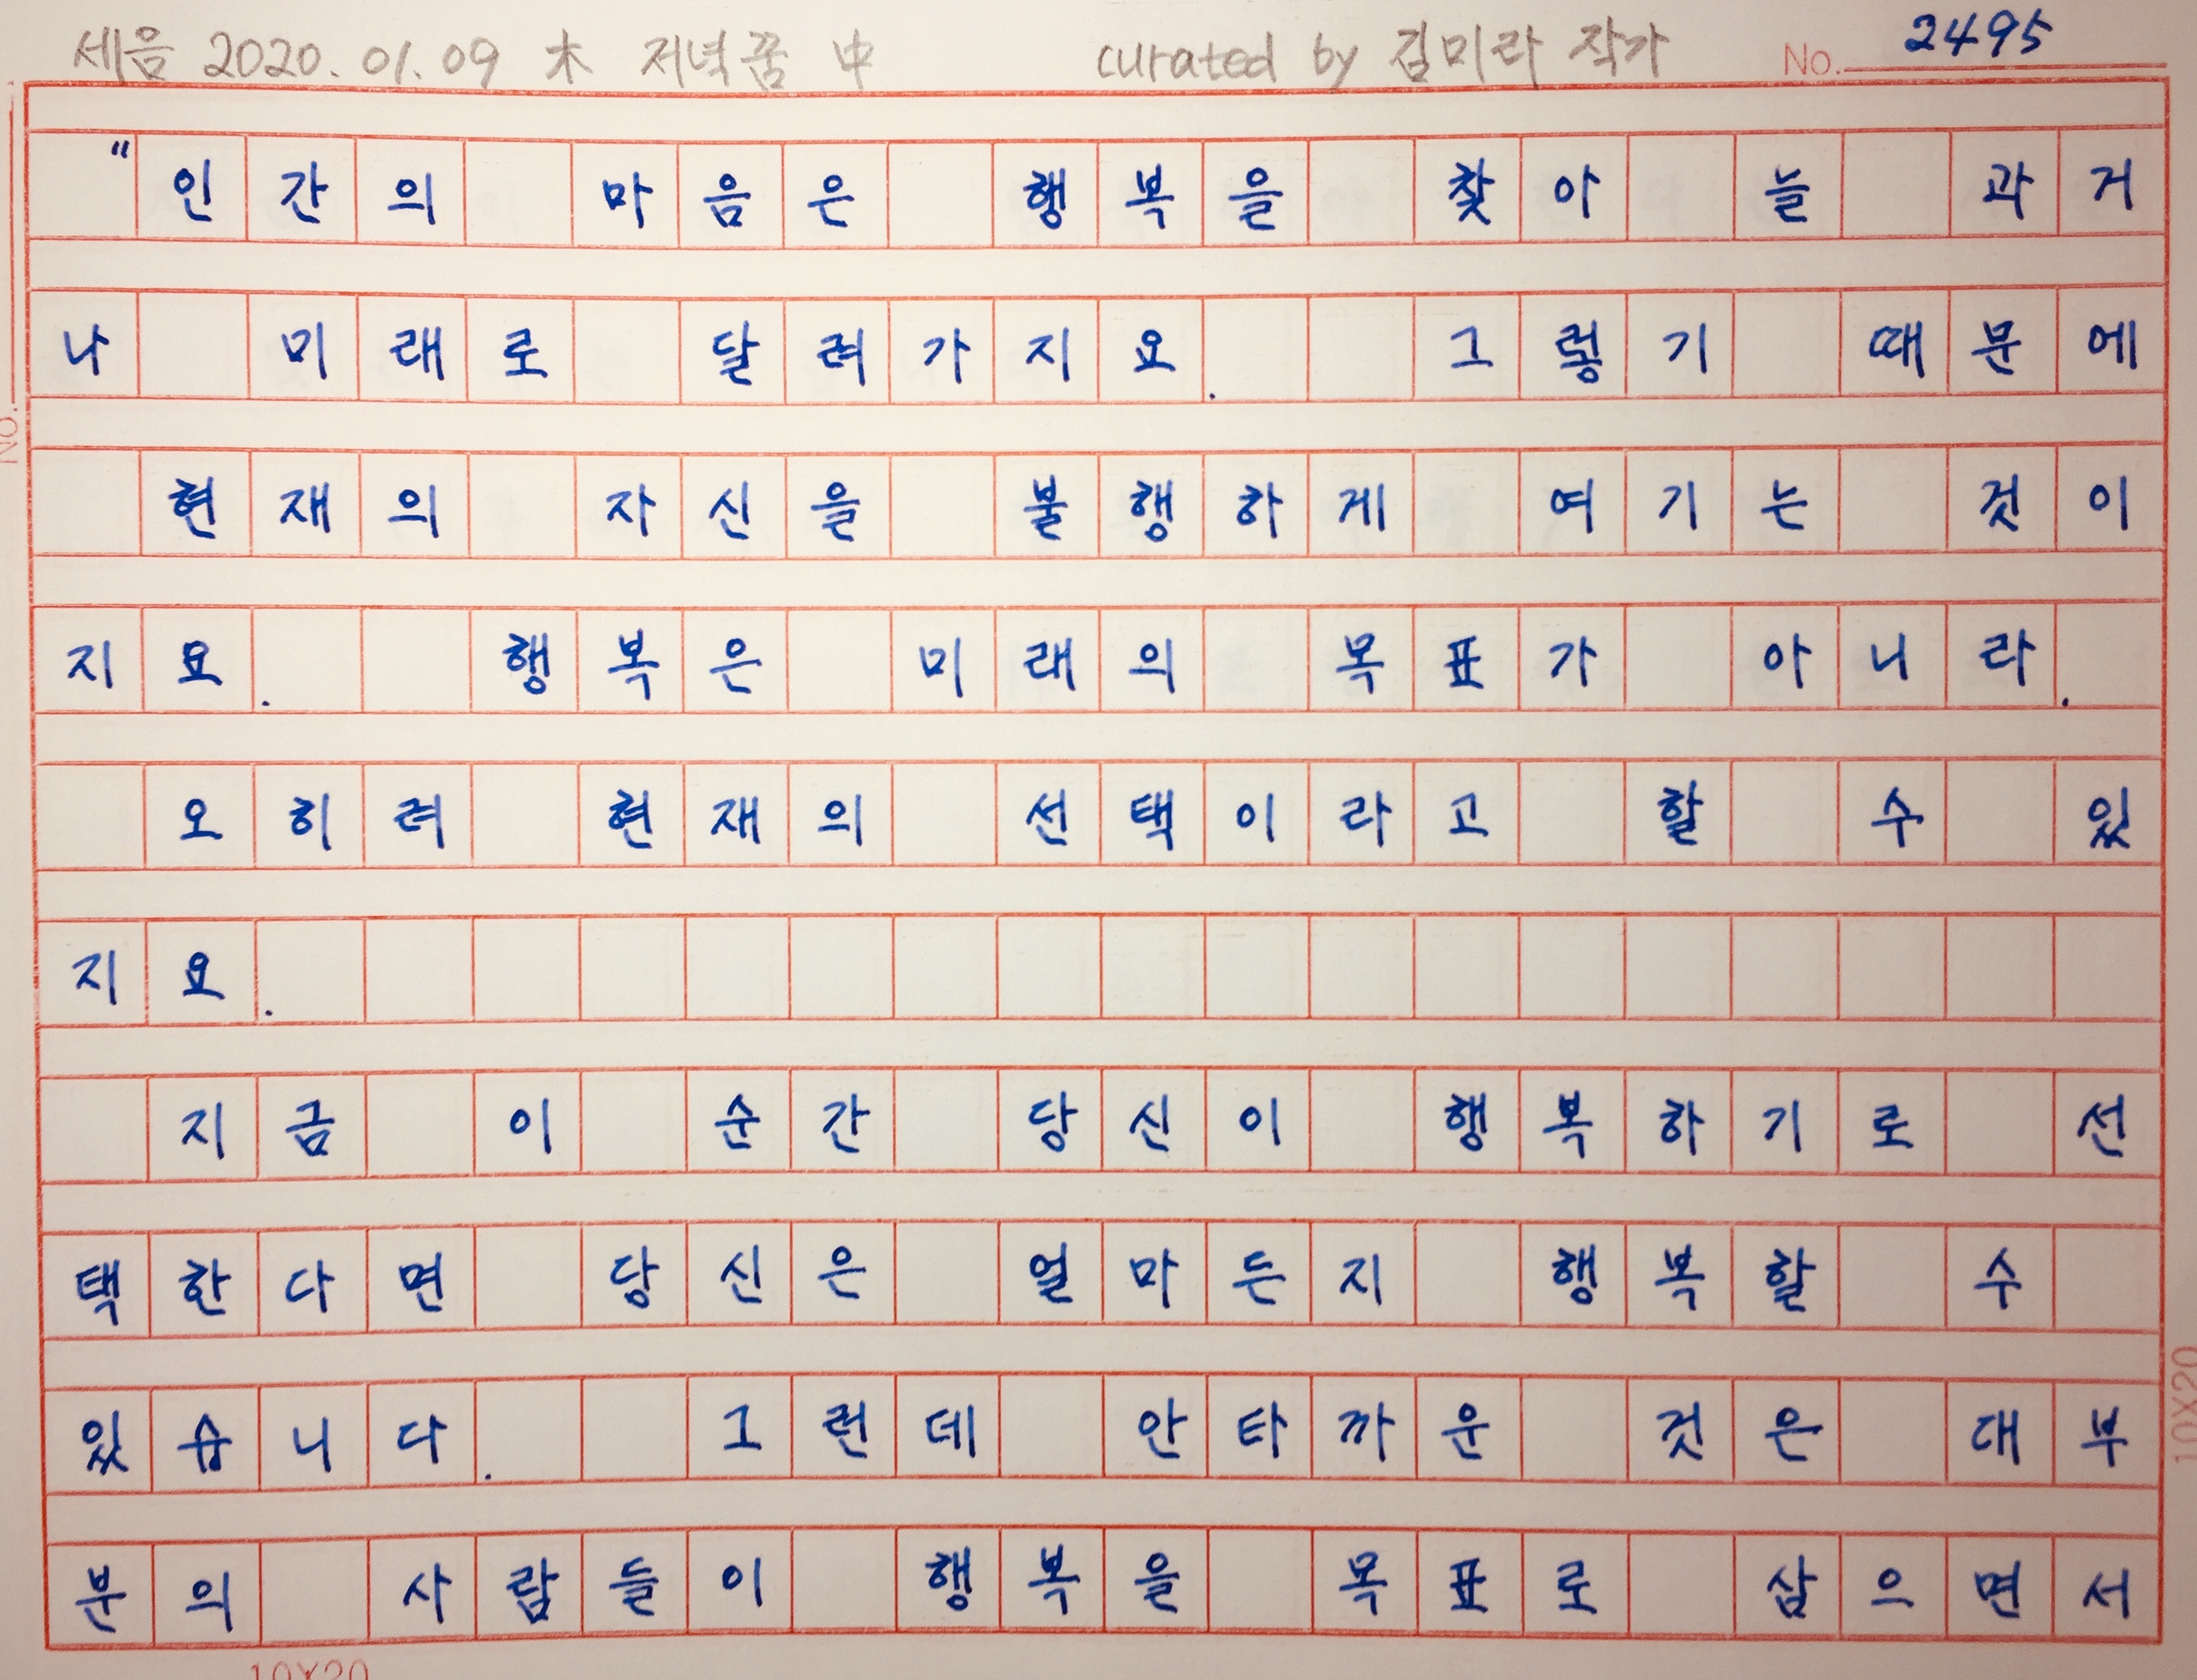 세음 2020. 01. 09 木 저녁꿈 中 curated by 김미라 작가 No. 2495
"인간의 마음은 행복을 찾아 늘 과거
나 미래로 달려가지요. 그렇기 때문에
현재의 자신을 불행하게 여기는 것이
지요. 행복은 미래의 목표가 아니라.
오히려 현재의 선택이라고 할 수 있
지요.
지금 이 순간 당신이 행복하기로 선
택한다면 당신은 얼마든지 행복할 수
있습니다. 그런데 안타까운 것은 대부
분의 사람들이 행복을 목표로 삼으면서
No.
10X20
10X20